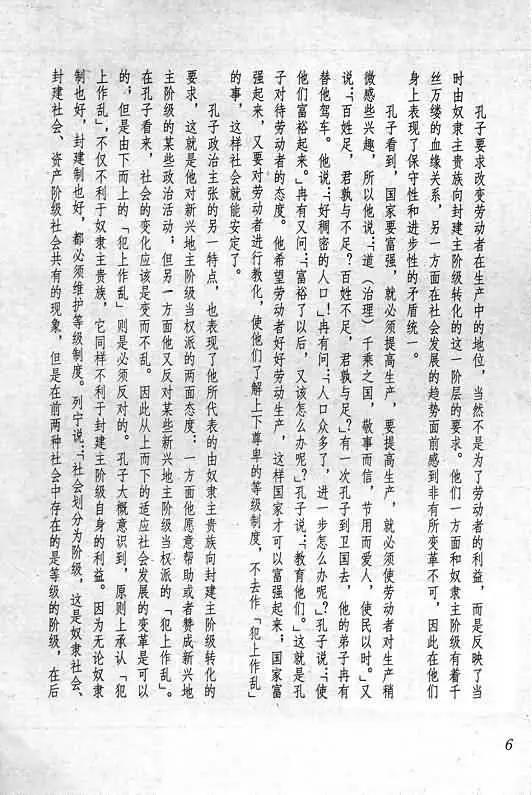 孔子要求改变劳动者在生产中的地位，当然不是为了劳动者的利益，而是反映了当
时由奴隶主贵族向封建主阶级转化的这一阶层的要求。他们一方面和奴隶主阶级有着千
丝万缕的血缘关系，另一方面在社会发展的趋势面前感到非有所变革不可，因此在他们
身上表现了保守性和进步性的矛盾统一。
孔子看到，国家要富强，就必须提高生产，要提高生产，就必须使劳动者对生产稍
微感些兴趣，所以他说：「道（治理）千乘之国，敬事而信，节用而爱人，使民以时。」又
说：「百姓足，君孰与不足？百姓不足，君孰与足？」有一次孔子到卫国去，他的弟子冉有
替他驾车。他说：「好稠密的人口」！冉有问：「人口众多了，进一步怎么办呢？」孔子说：「使
他们富裕起来。」冉有又问：「富裕了以后，又该怎么办呢？」孔子说：「教育他们。」这就是孔
子对待劳动者的态度。他希望劳动者好好劳动生产，这样国家才可以富强起来；国家富
强起来，又要对劳动者进行教化，使他们了解上下尊卑的等级制度，不去作「犯上作乱」
的事，这样社会就能安定了。
孔子政治主张的另一特点，也表现了他所代表的由奴隶主贵族向封建主阶级转化的
要求，这就是他对新兴地主阶级当权派的两面态度：一方面他愿意帮助或者赞成新兴地
主阶级的某些政治活动；但另一方面他又反对某些新兴地主阶级当权派的「犯上作乱」。
在孔子看来，社会的变化应该是变而不乱。因此从上而下的适应社会发展的变革是可以
的；但是由下而上的「犯上作乱」则是必须反对的。孔子大概意识到，原则上承认「犯
上作乱」，不仅不利于奴隶主贵族，它同样不利于封建主阶级自身的利益。因为无论奴隶
制也好，封建制也好，都必须维护等级制度。列宁说：「社会划分为阶级，这是奴隶社会、
封建社会、资产阶级社会共有的现象，但是在前两种社会中存在的是等级的阶级，在后
6